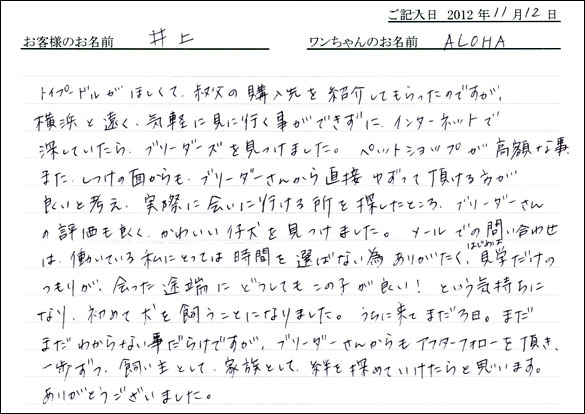 ご記入日 2012年11月12日
お客様のお名前 井上 ワンちゃんのお名前 ALOHA
トイプードルがほしくて、叔父の購入先を紹介してもらったのですが、
横浜と遠く、気軽に見に行く事ができずに、インターネットで
探していたら、ブリーダーズを見つけました。ペットショップが高額な事、
また、しつけの面からも、ブリーダーさんから直接ゆずって頂ける方が
良いと考え、実際に会いに行ける所を探したところ、ブリーダーさん
の評価も良く、かわいい仔犬を見つけました。メールでの問い合わせ
は、働いている私にとっては時間を選ばない為ありがたく、はじめは見学だけの
つもりが、会った途端にどうしてもこの子が良い!という気持ちに
なり、初めて犬を飼うことになりました。うちに来てまだ3日。まだ
まだわからない事だらけですが、ブリーダーさんからもアフターフォローを頂き、
一歩ずつ、飼い主として、家族として、絆を深めていけたらと思います。
ありがとうございました。